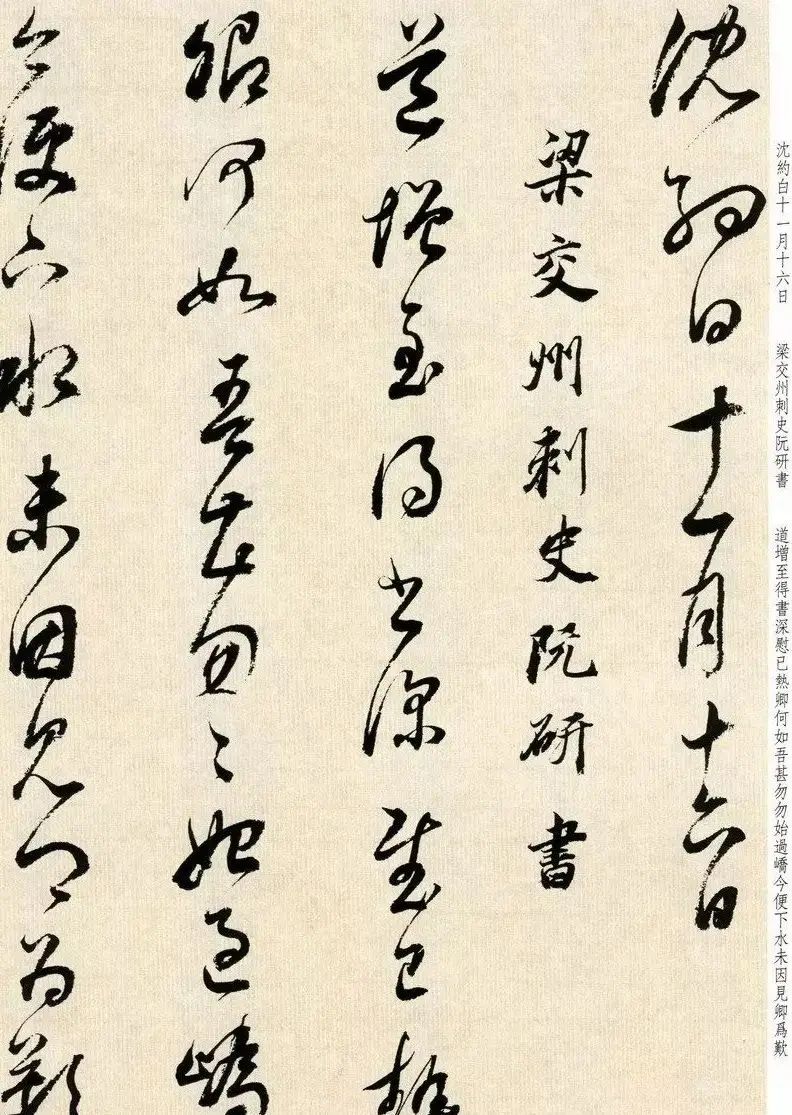 沈約白十一月十六日
梁交州刺史阮研書
道增至得書深慰已熱
卿何如吾甚勿勿始過嶠
今便下水未因見卿爲歎
沈約白十一月十六日 梁交州刺史阮研書 道增至得書深慰已熱卿何如吾甚勿勿始過嶠今便下水未因見卿爲歎